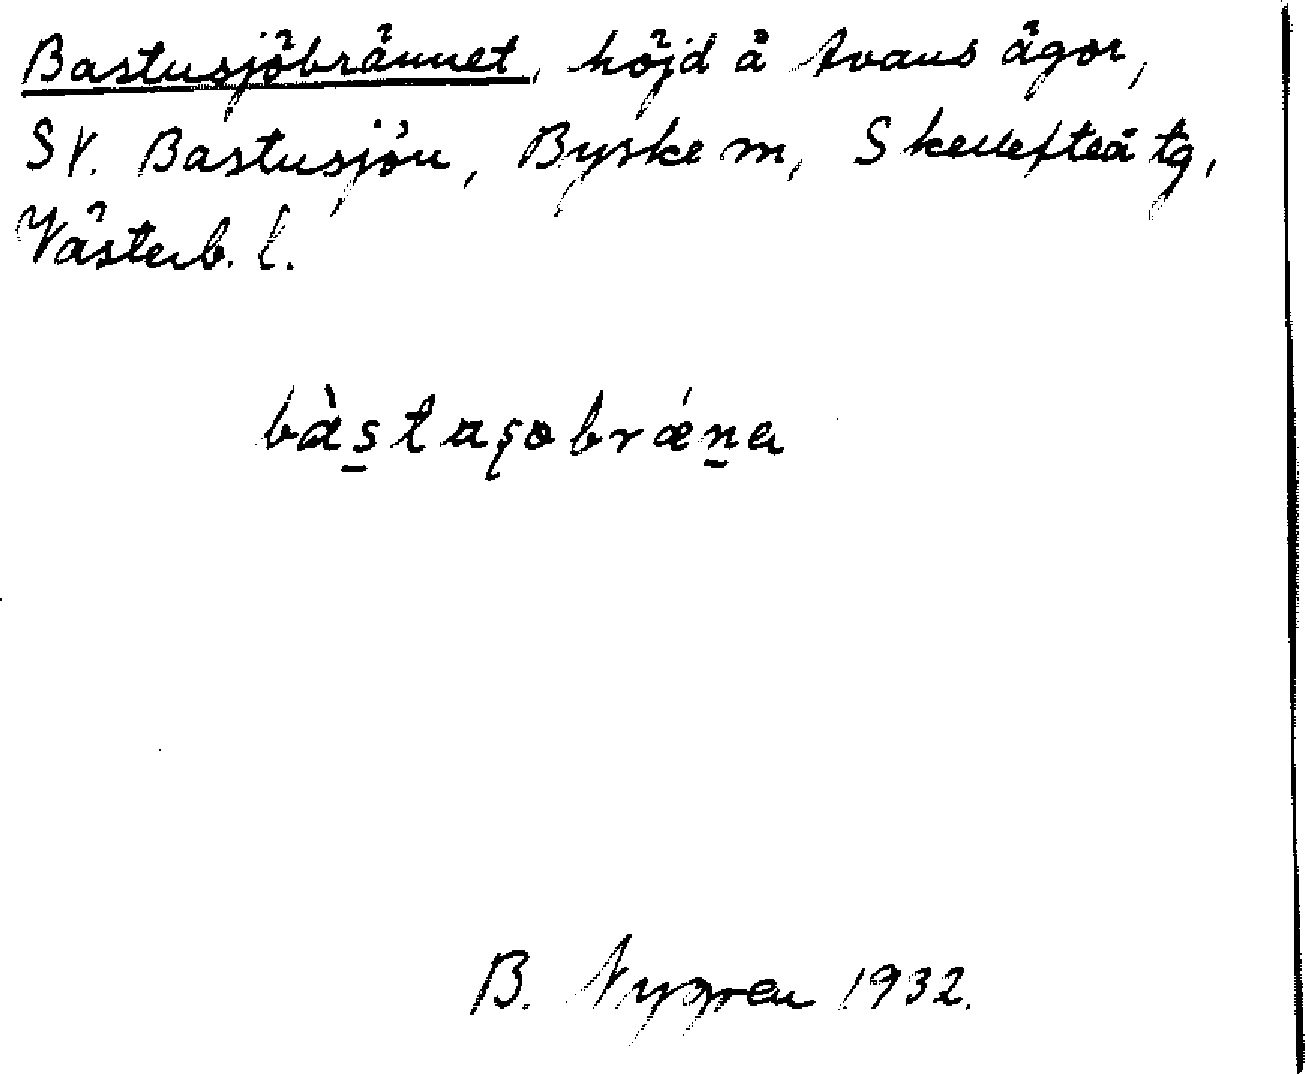 Bastusjöbrännet, höjd å Avans ägor,
SV. Bastusjön, Byske m, Skellefteå tg,
Västerb. l.
bàs̱tasobrǽṉa
B. Nygren 1932.